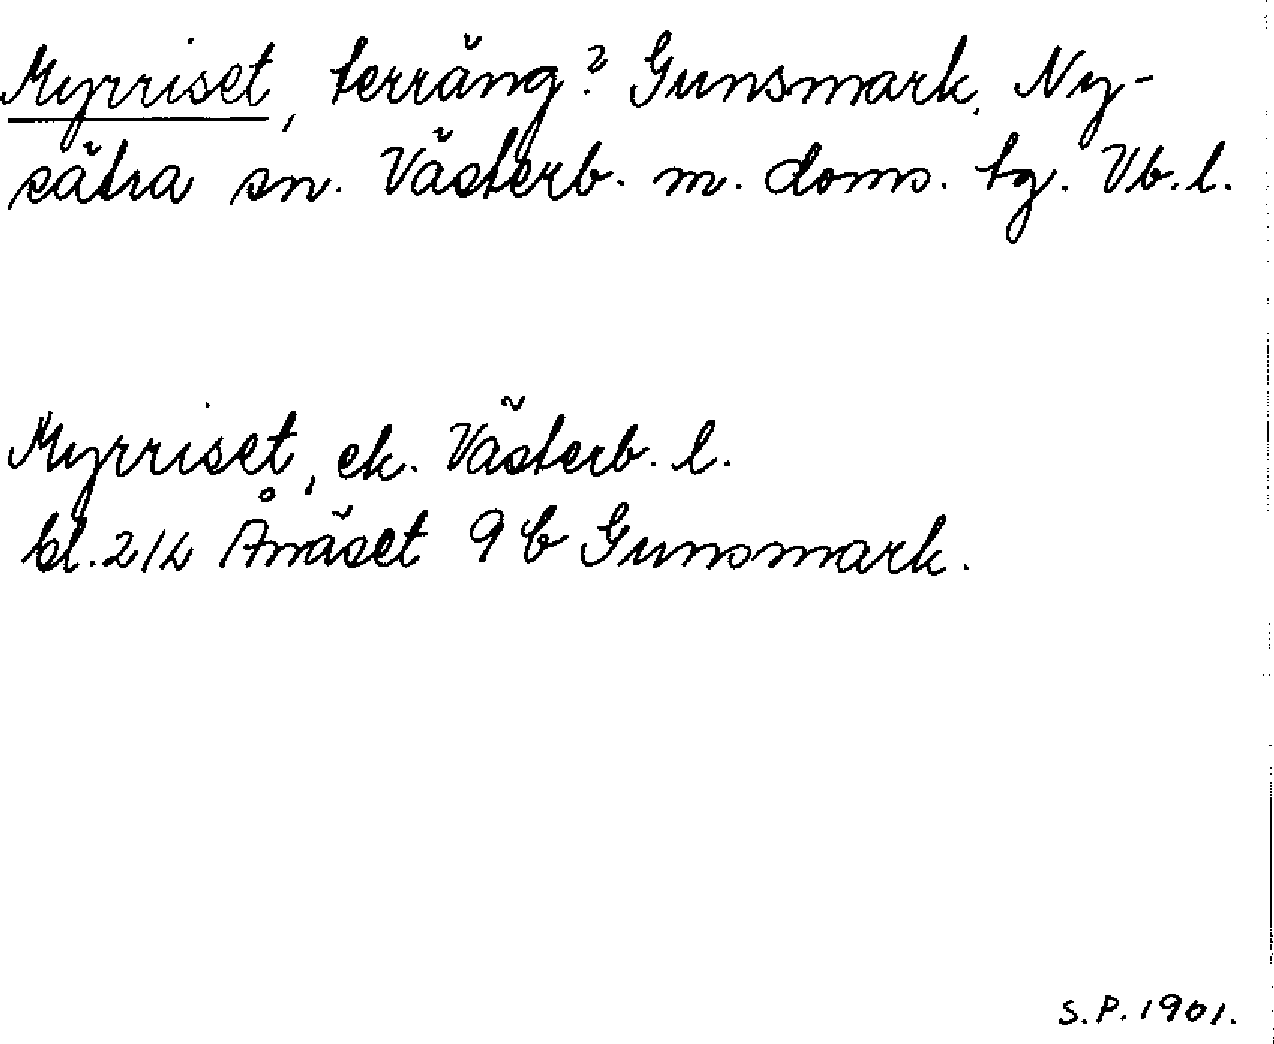 Myrriset, terräng? Gunsmark, Ny-
sätra sn. Västerb. m. doms. tg. Vb. l.
Myrriset, ek. Västerb. l.
bl. 21L Ånäset 9 b Gunsmark.
S.P. 1901.